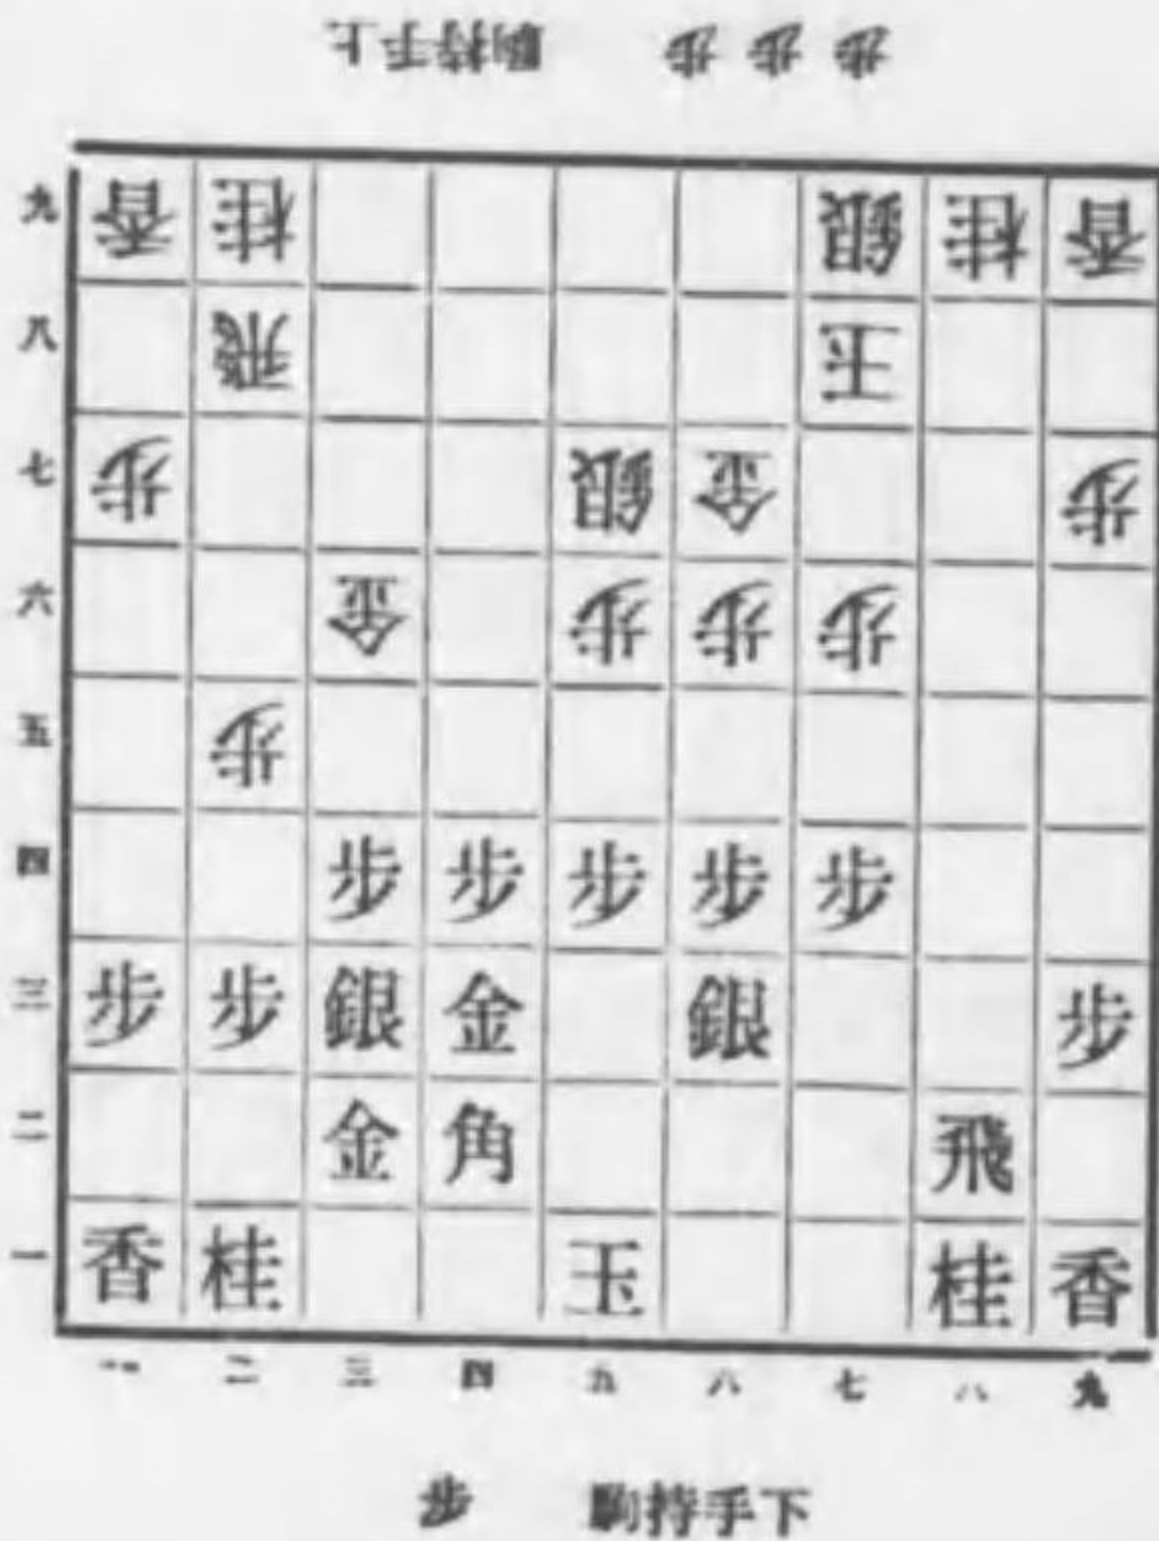 上手持駒 歩 歩 歩
九 香 桂 銀 桂 香
八 飛 王
七 歩 銀 金 歩
六 金 歩 歩 歩
五 歩
四 歩 歩 歩 歩 歩
三 歩 歩 銀 金 銀 歩
二 金 角 飛
一 香 桂 玉 桂 香
一 二 三 四 五 八 七 八 九
歩 駒持手下